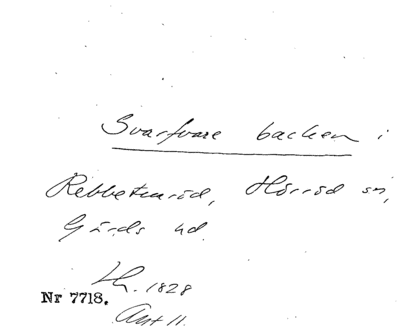 Svarfvare backen i
Rebbetuaröd, Hörröd sn,
Gärds hd.
Lh. 1828
Nr 7718.
Avt 11.